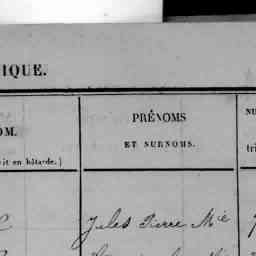 IQUE.
OM.
it en bâtarde.)
PRÉNOMS
ET SURNOMS.
NU
tri
Jules Pierre Mie